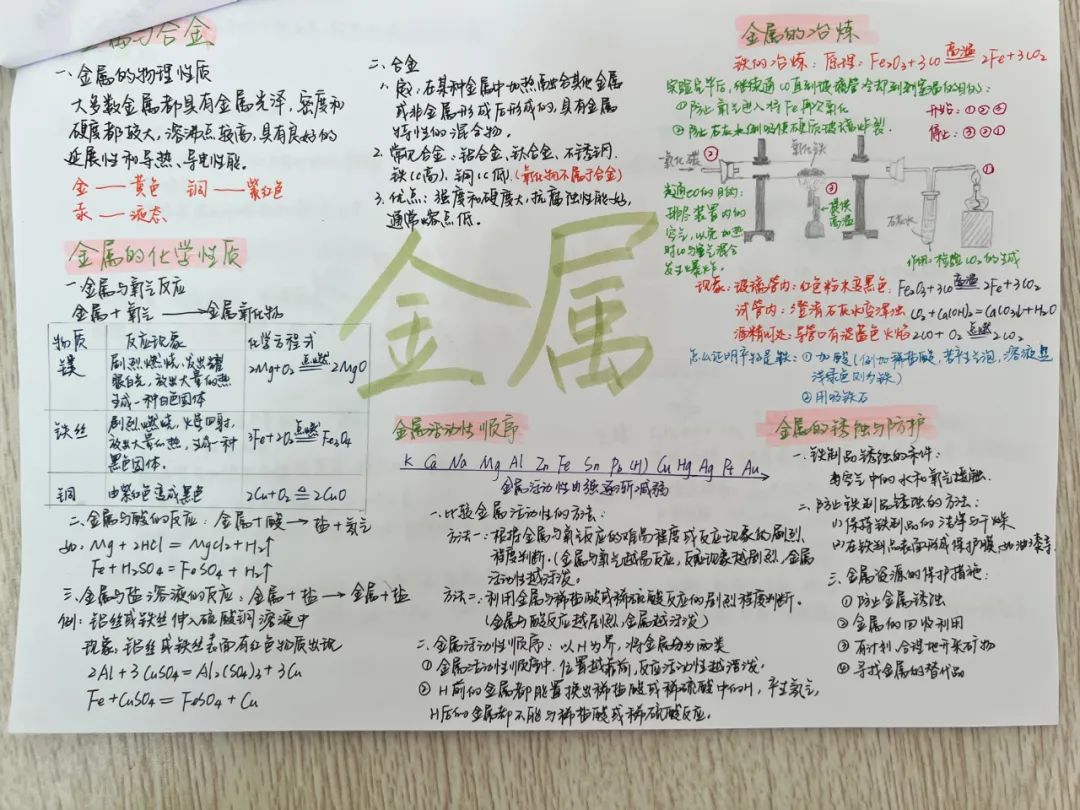 金属与合金
一、金属的物理性质
大多数金属都具有金属光泽,密度和
硬度都较大,溶沸点较高,具有良好的
延展性和导热、导电性能。
金——黄色 铜——紫红色
汞——液态
二、合金
1. 在某种金属中加热融合其他金属
或非金属形成后形成的,具有金属
特性的混合物。
2. 常见合金:铝合金、钛合金、不锈钢、
铁(C高)、钢(C低)(氧化物不属于合金)
3. 优点:强度和硬度大,抗腐蚀性能好,
通常熔点低。
金属的化学性质
一、金属与氧气反应
金属+氧气→金属氧化物
物质 反应现象 化学方程式
镁 剧烈燃烧,发出耀
眼白光,放出大量的热
生成一种白色固体
2Mg+O₂ 点燃 2MgO
铁丝 剧烈燃烧,火星四射,
放出大量的热,生成一种
黑色固体。
3Fe+2O₂ 点燃 Fe₃O₄
铜 由紫红色变成黑色 2Cu+O₂ △ 2CuO
二、金属与酸的反应:金属+酸→盐+氢气
如:Mg+2HCl=MgCl₂+H₂↑
Fe+H₂SO₄=FeSO₄+H₂↑
三、金属与盐溶液的反应:金属+盐→金属+盐
例:铝丝或铁丝伸入硫酸铜溶液中
现象:铝丝或铁丝表面有红色物质出现
2Al+3CuSO₄=Al₂(SO₄)₃+3Cu
Fe+CuSO₄=FeSO₄+Cu
金属
金属活动性顺序
K Ca Na Mg Al Zn Fe Sn Pb (H) Cu Hg Ag Pt Au
金属活动性由强逐渐减弱
一、比较金属活动性的方法:
方法一:根据金属与氧气反应的难易程度或反应现象的剧烈
程度判断。(金属与氧气越易反应,反应现象越剧烈,金属
活动性越活泼。
方法二:利用金属与稀盐酸或稀硫酸反应的剧烈程度判断。
(金属与酸反应越剧烈,金属越活泼)
二、金属活动性顺序:以H为界,将金属分为两类
① 金属活动性顺序中,位置越靠前,反应活动性越活泼。
② H前的金属都能置换出稀盐酸或稀硫酸中的H,产生氢气,
H后的金属都不能与稀盐酸或稀硫酸反应。
金属的冶炼
铁的冶炼:原理:Fe₂O₃+3CO 高温 2Fe+3CO₂
实验完毕后,继续通CO直到玻璃管冷却到室温的目的:
①防止氧气进入将Fe再次氧化
②防止石灰水倒吸使硬质玻璃炸裂.
开始:①②③
停止:③②①
氧化碳 ② 氧化铁 ①
③
提供
高温
石灰水
先通CO的目的:
排尽装置内的
空气,以免加热
时CO与空气混合
发生爆炸。
作用:检验CO₂的生成
现象:玻璃管内:红色粉末变黑色. Fe₂O₃+3CO 高温 2Fe+3CO₂
试管内:澄清石灰水变浑浊 CO₂+Ca(OH)₂=CaCO₃↓+H₂O
酒精灯处:导管口有淡蓝色火焰 2CO+O₂ 点燃 2CO₂
怎么证明产物是铁:①加酸(例加稀盐酸,若产生气泡,溶液呈
浅绿色则为铁)
②用吸铁石
金属的锈蚀与防护
一、铁制品锈蚀的条件:
与空气中的水和氧气接触.
二、防止铁制品锈蚀的方法:
(1)保持铁制品的洁净与干燥
(2)在铁制品表面形成保护膜,如油漆等
三、金属资源的保护措施:
①防止金属锈蚀
②金属的回收利用
③有计划、合理地开采矿物
④寻找金属的替代品